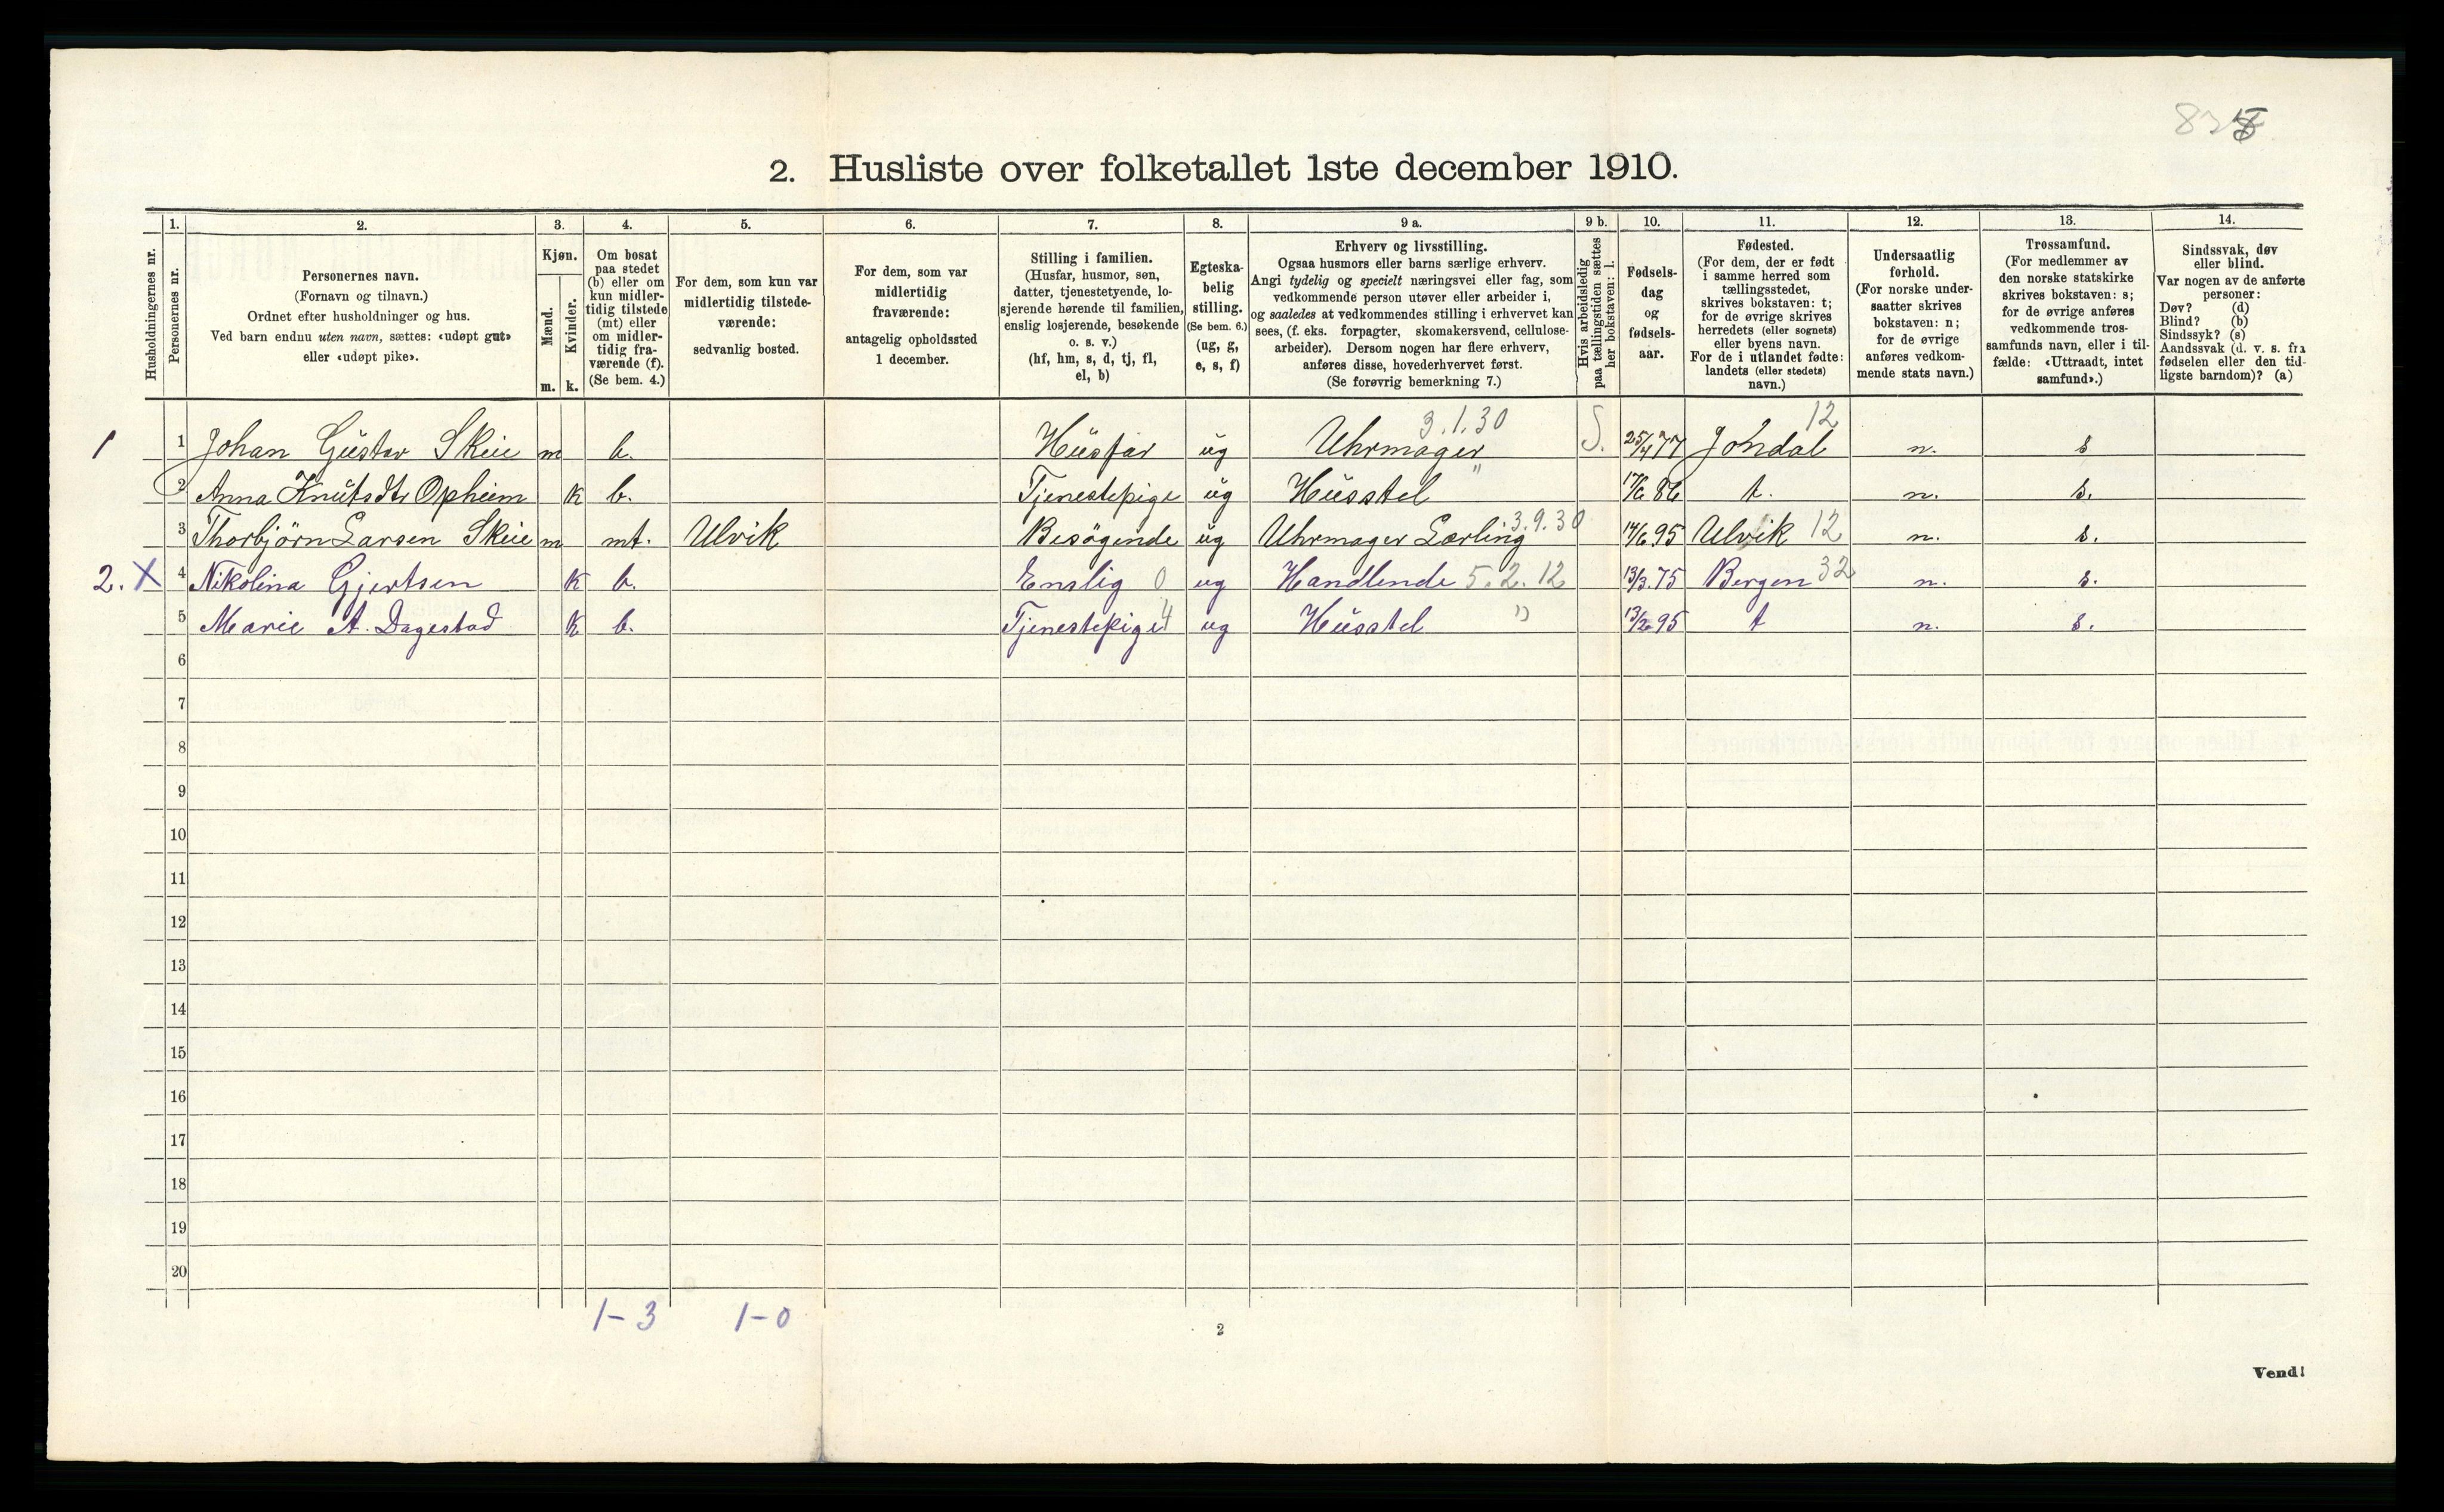 835
2. Husliste over folketallet 1ste december 1910.
Husholdningernes nr.
1. Personernes nr.
2. Personernes navn.
(Fornavn og tilnavn.)
Ordnet efter husholdninger og hus.
Ved barn endnu uten navn, sættes: «udøpt gut»
eller «udøpt pike».
3. Kjøn.
Mænd. m.
Kvinder. k.
4. Om bosat
paa stedet
(b) eller om
kun midler-
tidig tilstede
(mt) eller
om midler-
tidig fra-
værende (f).
(Se bem. 4.)
5. For dem, som kun var
midlertidig tilstede-
værende:
sedvanlig bosted.
6. For dem, som var
midlertidig
fraværende:
antagelig opholdssted
1 december.
7. Stilling i familien.
(Husfar, husmor, søn,
datter, tjenestetyende, lo-
sjerende hørende til familien,
enslig losjerende, besøkende
o. s. v.)
(hf, hm, s, d, tj, fl,
el, b)
8. Egteska-
belig
stilling.
(Se bem. 6.)
(ug, g,
e, s, f)
9 a. Erhverv og livsstilling.
Ogsaa husmors eller barns særlige erhverv.
Angi tydelig og specielt næringsvei eller fag, som
vedkommende person utøver eller arbeider i,
og saaledes at vedkommendes stilling i erhvervet kan
sees, (f. eks. forpagter, skomakersvend, cellulose-
arbeider). Dersom nogen har flere erhverv,
anføres disse, hovederhvervet først.
(Se forøvrig bemerkning 7.)
9 b. Hvis arbeidsledig
paa tællingstiden sættes
her bokstaven: l.
10. Fødsels-
dag
og
fødsels-
aar.
11. Fødested.
(For dem, der er født
i samme herred som
tællingsstedet,
skrives bokstaven: t;
for de øvrige skrives
herredets (eller sognets)
eller byens navn.
For de i utlandet fødte:
landets (eller stedets)
navn.)
12. Undersaatlig
forhold.
(For norske under-
saatter skrives
bokstaven: n;
for de øvrige
anføres vedkom-
mende stats navn.)
13. Trossamfund.
(For medlemmer av
den norske statskirke
skrives bokstaven: s;
for de øvrige anføres
vedkommende tros-
samfunds navn, eller i til-
fælde: «Uttraadt, intet
samfund».)
14. Sindssvak, døv
eller blind.
Var nogen av de anførte
personer:
Døv? (d)
Blind? (b)
Sindssyk? (s)
Aandssvak (d. v. s. fra
fødselen eller den tid-
ligste barndom)? (a)
1 1 Johan Gustav Skeie m b. Husfar ug Uhrmager 3.1.30 S. 25/4 77 Jondal 12 n. s
2 Anna Knutsdtr Opheim k b. Tjenestepige ug Husstel " 17/6 86 t. n. s.
3 Thorbjørn Larsen Skeie m mt. Ulvik Besøgende ug Uhrmager Lærling 3.9.30 14/6 95 Ulvik 12 n. s.
2. X 4 Nikolina Gjertsen k b. Enslig 0 ug Handlende 5.2.12 13/3 75 Bergen 32 n. s.
5 Marie A. Dagestad k b. Tjenestepige 4 ug Husstel " 13/2 95 t n. s.
6
7
8
9
10
11
12
13
14
15
16
17
18
19
20
1-3 1-0
2
Vend!